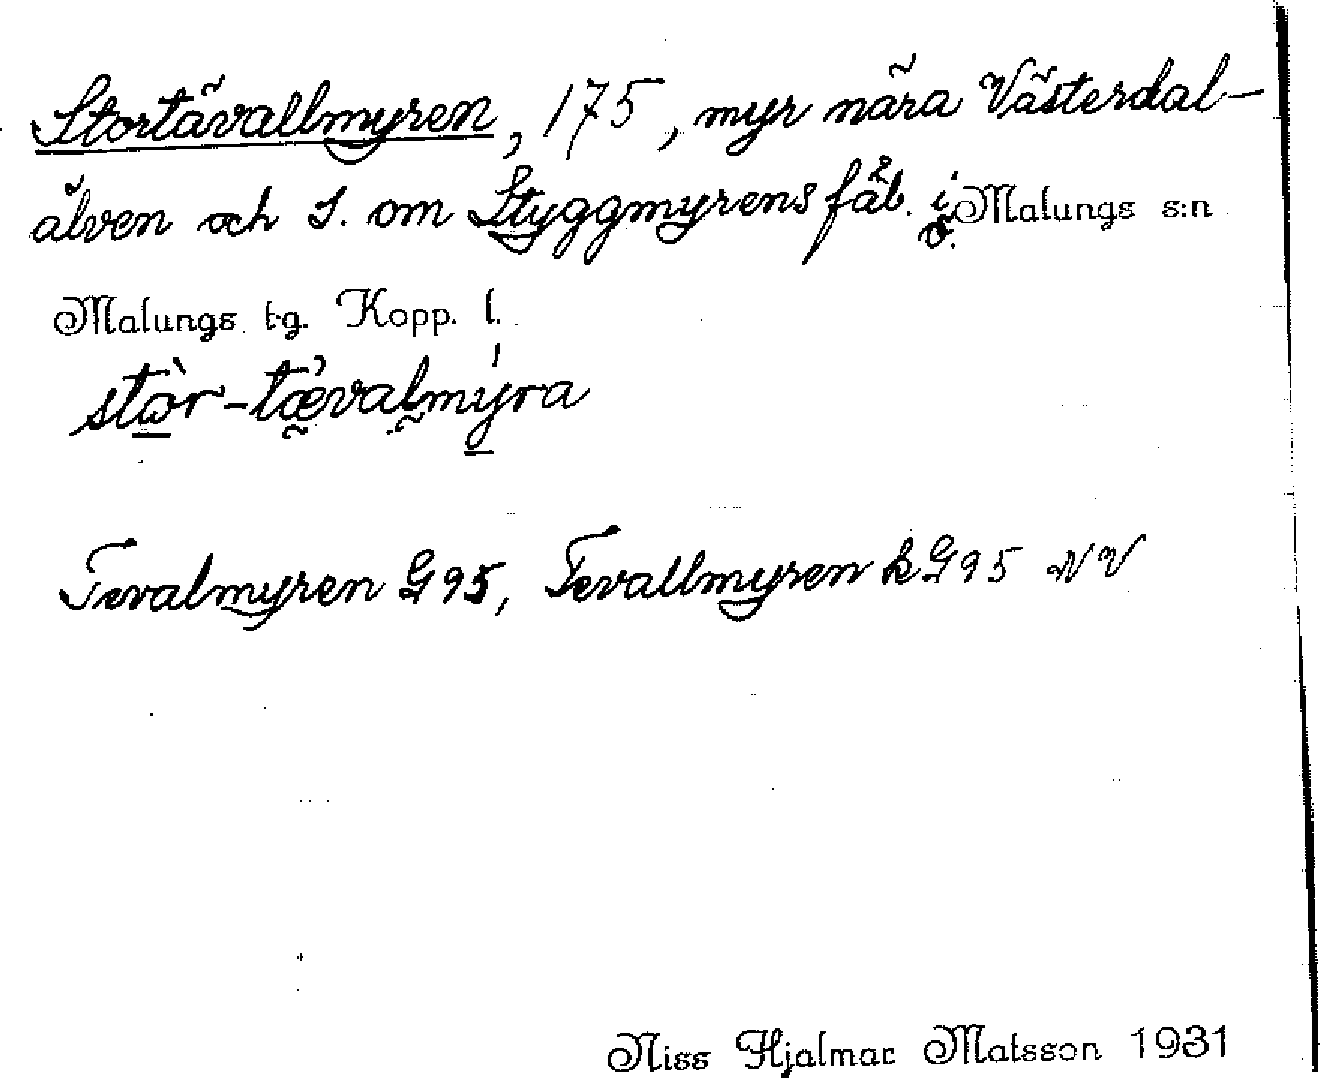 Stortävallmyren, 175, myr nära Västerdal-
älven och S. om Styggmyrens fäb. i Malungs s:n
ö.
Malungs t-g. Kopp. l.
stòr-tævalmýra
Tevalmyren G95, Tevallmyren k G95 NV
Niss Hjalmar Matsson 1931